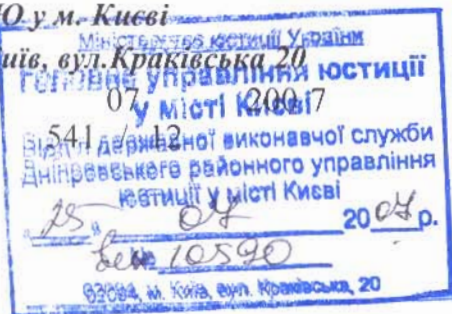 Ю у м. Києві
иїв, вул.Краківська 20
Міністерство юстиції України
Головне управління юстиції
у місті Києві
07 200 7
541 / 12
Відділ державної виконавчої служби
Дніпровського районного управління
юстиції у місті Києві
"25" 07 2007р.
№ 10590
м. Київ, вул. Краківська, 20